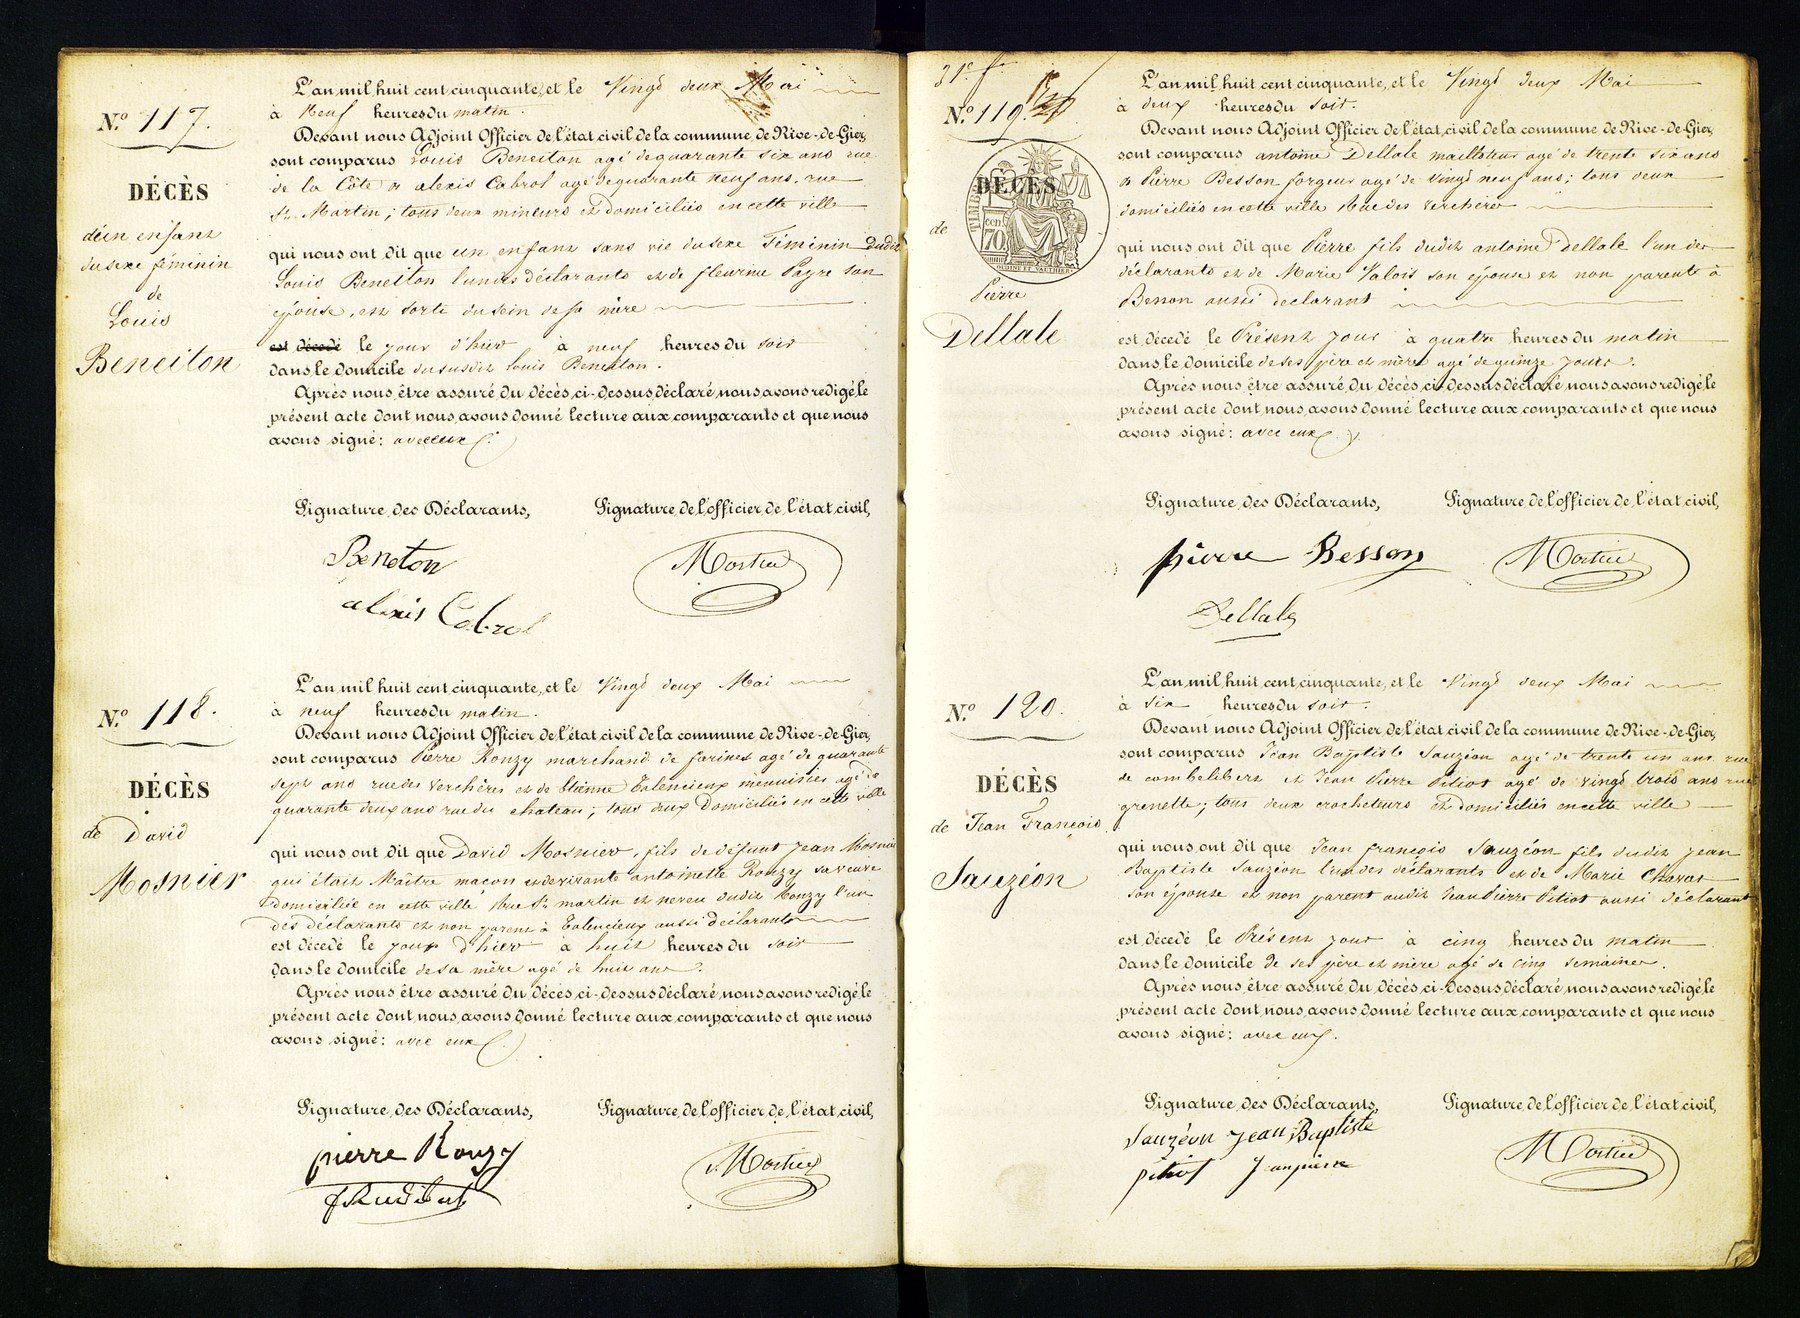 N.º 117.
DÉCÈS
d'un enfant
du sexe féminin
de
Louis
Beneiton
L'an mil huit cent cinquante, et le Vingt deux Mai
à Neuf heures du matin.
Devant nous Adjoint Officier de l'état civil de la commune de Rive-de-Gier,
sont comparus Louis Beneiton agé de quarante six ans rue
de la Côte & alexis Cabrol agé de quarante neuf ans, rue
St. Martin; tous deux mineurs et domiciliés en cette ville
qui nous ont dit que un enfant sans vie du sexe Féminin dudit
Louis Beneiton l'un des déclarants et de fleurine Payre son
épouse, est sorte du sein de sa mère
est décedé le jour d'hier à neuf heures du soir
dans le domicile du susdit Louis Beneiton.
Après nous être assuré du décès, ci-dessus déclaré, nous avons redigé, le
présent acte dont nous avons donné lecture aux comparants et que nous
avons signé: avec eux
Signature des Déclarants, Signature de l'officier de l'état civil,
Beneton
alexis Cabrol
Mortier
N.º 118.
DÉCÈS
de David
Mosnier
L'an mil huit cent cinquante, et le Vingt deux Mai
à neuf heures du matin.
Devant nous Adjoint Officier de l'état civil de la commune de Rive-de-Gier,
sont comparus Pierre Rouzy marchand de farines agé de quarante
sept ans rue des Verchères et de Etienne Talencieux menuisier agé de
quarante deux ans rue du chateau; tous deux domiciliés en cette ville
qui nous ont dit que David Mosnier, fils de défunt Jean Mosnier
qui était Maître maçon et de vivante antoinette Rouzy sa veuve
domiciliée en cette ville, rue St. martin et neveu dudit Rouzy l'un
des déclarants et non parent à Talencieux aussi déclarant
est décedé le jour d'hier à huit heures du soir
dans le domicile de sa mère agé de huit ans.
Après nous être assuré du décès, ci-dessus déclaré, nous avons redigé, le
présent acte dont nous avons donné lecture aux comparants et que nous
avons signé: avec eux
Signature des Déclarants, Signature de l'officier de l'état civil,
pierre Rouzy
Mortier
31e f.
N.º 119.
DÉCÈS
TIMBRE
cen
70
OUDINE ET VAUTHIER
de
Pierre
Dellale
L'an mil huit cent cinquante, et le Vingt deux Mai
à deux heures du soir.
Devant nous Adjoint Officier de l'état civil de la commune de Rive-de-Gier,
sont comparus antoine Dellale mailloteur agé de trente six ans
& Pierre Besson forgeur agé de vingt neuf ans; tous deux
domiciliés en cette ville Rue des Verchères
qui nous ont dit que Pierre fils dudit antoine Dellale l'un des
déclarants et de Marie Valois son épouse et non parente à
Besson aussi declarant
est décedé le Présent jour à quatre heures du matin
dans le domicile de ses père et mère agé de quinze jours.
Après nous être assuré du décès, ci-dessus déclaré, nous avons redigé, le
présent acte dont nous avons donné lecture aux comparants et que nous
avons signé: avec eux
Signature des Déclarants, Signature de l'officier de l'état civil,
pierre Besson
Dellale
Mortier
N.º 120.
DÉCÈS
de Jean François
Sauzéon
L'an mil huit cent cinquante, et le Vingt deux Mai
à Six heures du soir.
Devant nous Adjoint Officier de l'état civil de la commune de Rive-de-Gier,
sont comparus Jean Baptiste Sauzéon agé de trente un ans rue
de combelibert et Jean Pierre Pitiot agé de vingt trois ans rue
grenette; tous deux crocheteurs et domiciliés en cette ville
qui nous ont dit que Jean françois Sauzéon fils dudit Jean
Baptiste Sauzéon l'un des déclarants et de Marie Chavas
son épouse et non parent audit Jean Pierre Pitiot aussi déclarant
est décedé le Présent jour à cinq heures du matin
dans le domicile de ses père et mère agé de cinq semaines.
Après nous être assuré du décès, ci-dessus déclaré, nous avons redigé, le
présent acte dont nous avons donné lecture aux comparants et que nous
avons signé: avec eux.
Signature des Déclarants, Signature de l'officier de l'état civil,
Sauzéon Jean Baptiste
pitiot Jean pierre
Mortier